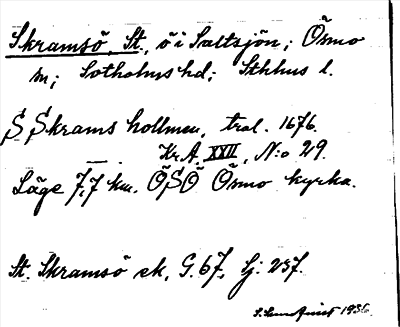 Skramsö, St., ö i Saltsjön; Ösmo
sn; Sotholms hd; Sthlms l.
S Skrams hollmen, tral. 1676.
Kr.A. XXII, N:o 29.
Läge 7,7 km. ÖSÖ Ösmo kyrka.
St. Skramsö ek, G. 67, Sj: 237.
1936